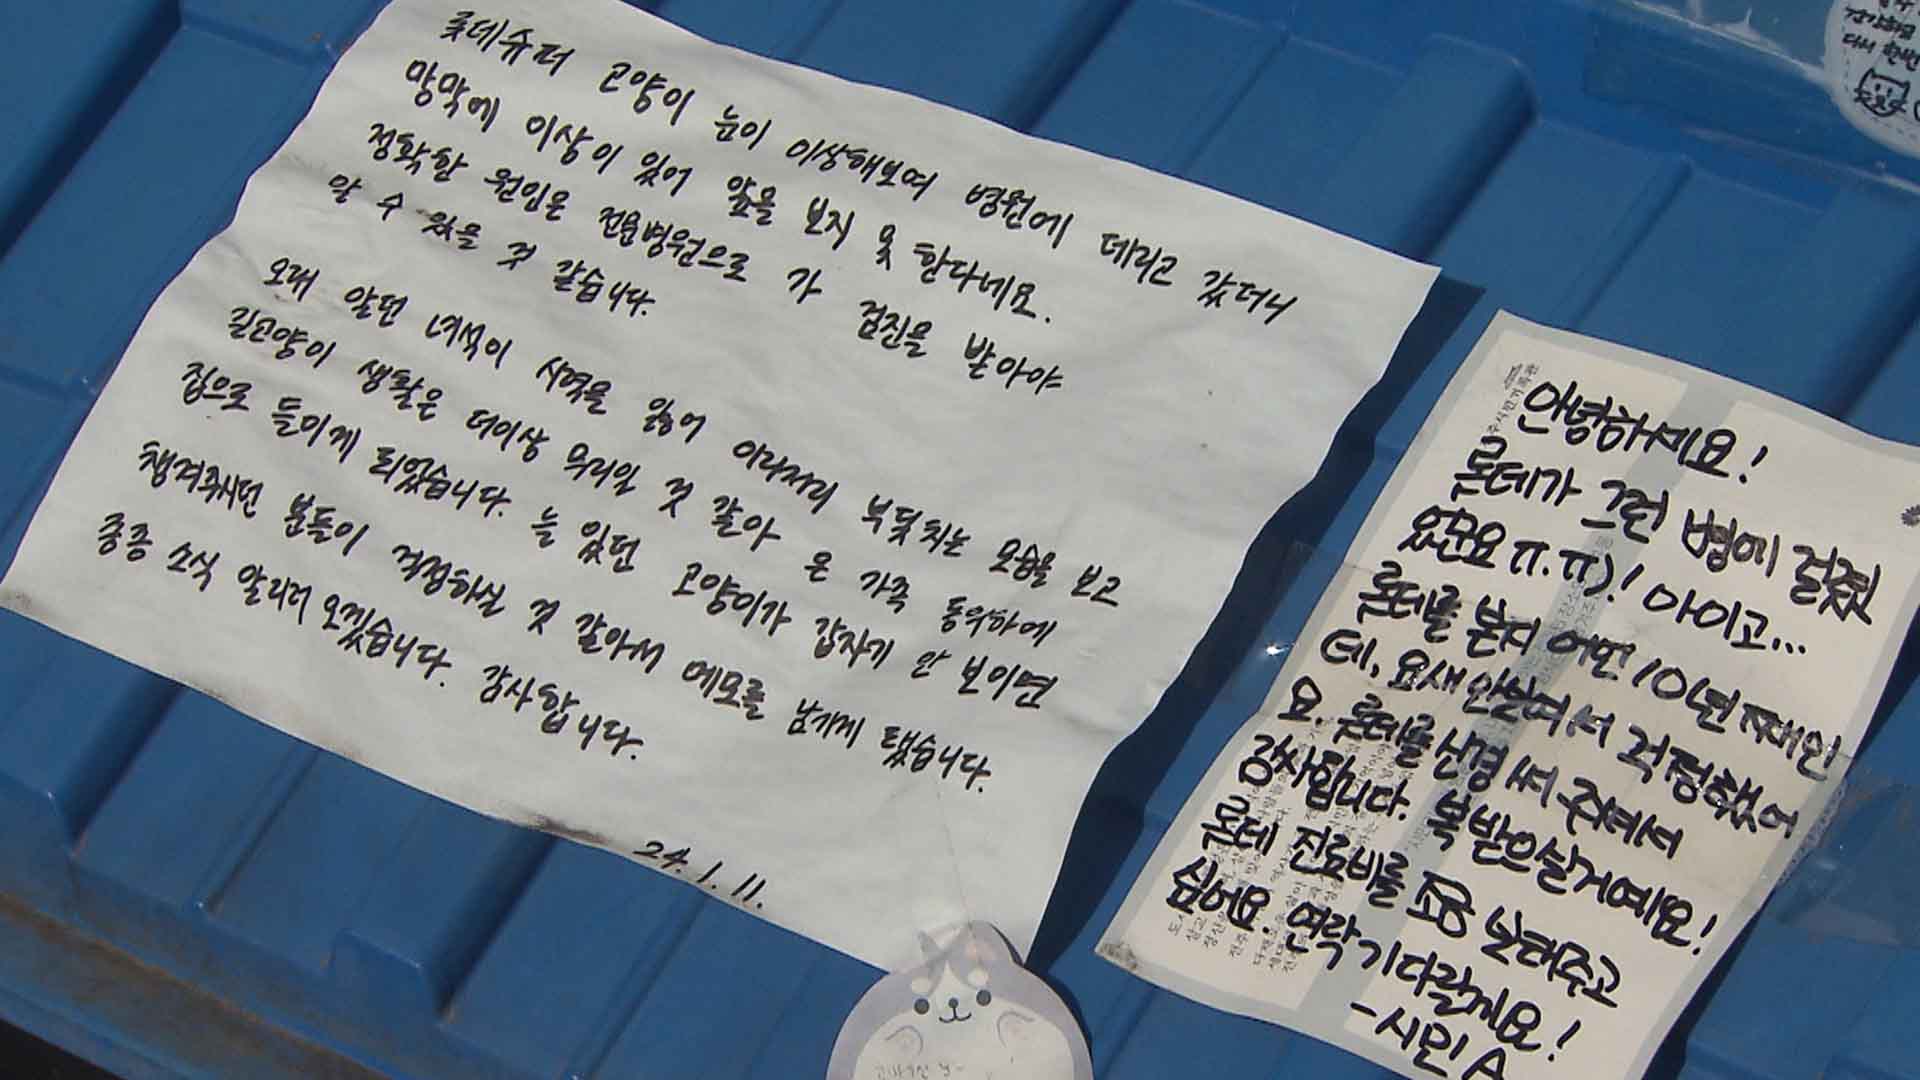 롯데슈퍼 고양이 눈이 이상해보여 병원에 데리고 갔더니
망막에 이상이 있어 앞을 보지 못 한다네요.
정확한 원인은 전문병원으로 가 검진을 받아야
알 수 있을 것 같습니다.
오래 알던 녀석이 시력을 잃어 이리저리 부딪치는 모습을 보고
길고양이 생활은 더이상 무리일 것 같아 온 가족 동의하에
집으로 들이게 되었습니다. 늘 있던 고양이가 갑자기 안 보이면
챙겨주시던 분들이 걱정하실 것 같아서 메모를 남기게 됐습니다.
종종 소식 알리러 오겠습니다. 감사합니다.
24. 1. 11.
안녕하세요!
롯데가 그런 병에 걸렸
었군요 ㅠ.ㅠ)! 아이고...
롯데를 본지 어언 10년 째인
데, 요새 안보여서 걱정했어
요. 롯데를 신경 써 주셔서
감사합니다. 복받으실거예요!
롯데 진료비를 조금 보태주고
싶어요. 연락 기다릴게요!
- 시민 A
다시 한번